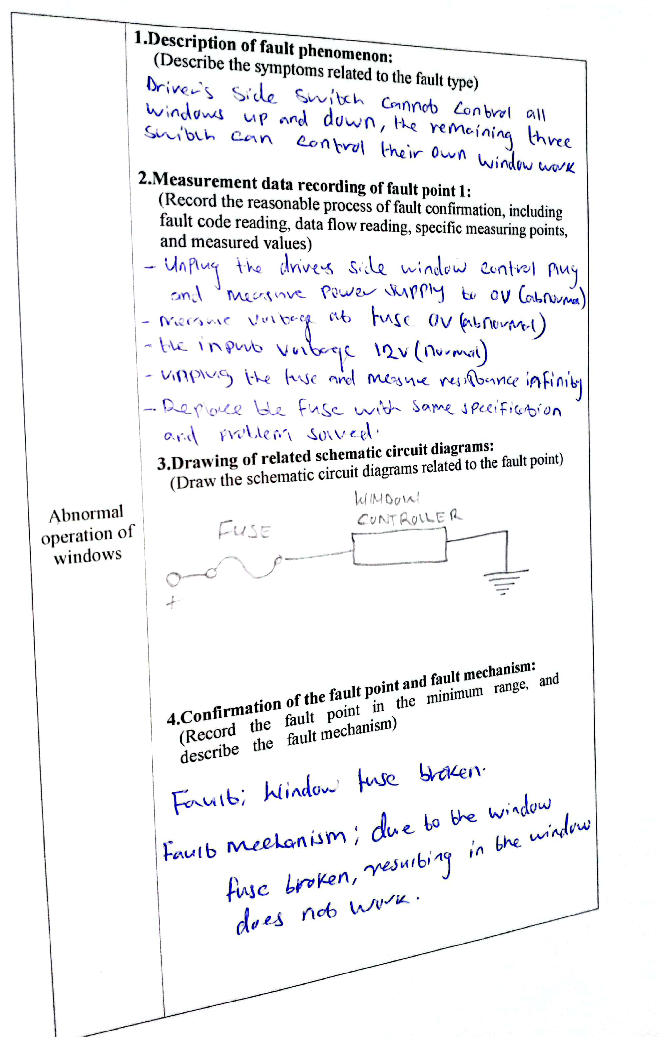 1.Description of fault phenomenon:
(Describe the symptoms related to the fault type)
Driver's side switch cannot control all
windows up and down, the remaining three
switch can control their own window work
2.Measurement data recording of fault point 1:
(Record the reasonable process of fault confirmation, including
fault code reading, data flow reading, specific measuring points,
and measured values)
- Unplug the drivers side window control plug
and measure power supply to 0V (abnormal)
- measure voltage at fuse 0V (abnormal)
- the input voltage 12v (normal)
- unplug the fuse and measure resistance infinity
- Replace the fuse with same specification
and problem solved.
3.Drawing of related schematic circuit diagrams:
(Draw the schematic circuit diagrams related to the fault point)
Abnormal
operation of
windows
WINDOW
CONTROLLER
FUSE
+
4.Confirmation of the fault point and fault mechanism:
(Record the fault point in the minimum range, and
describe the fault mechanism)
Fault; Window fuse broken.
Fault mechanism; due to the window
fuse broken, resulting in the window
does not work.